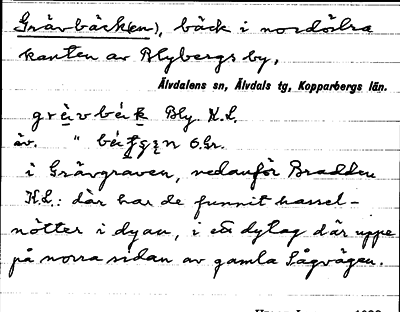 Grävbäck(en), bäck i nordöstra
kanten av Blybergs by,
Älvdalens sn, Älvdals tg, Kopparbergs län.
grèvbek Bly. K.L.
äv. " be O.Gr.
i Grävgraven, nedanför Bradden
K.L.: där har de funnit hassel-
nötter i dyan, i ett dylag där uppe
på norra sidan av gamla Sågvägen.